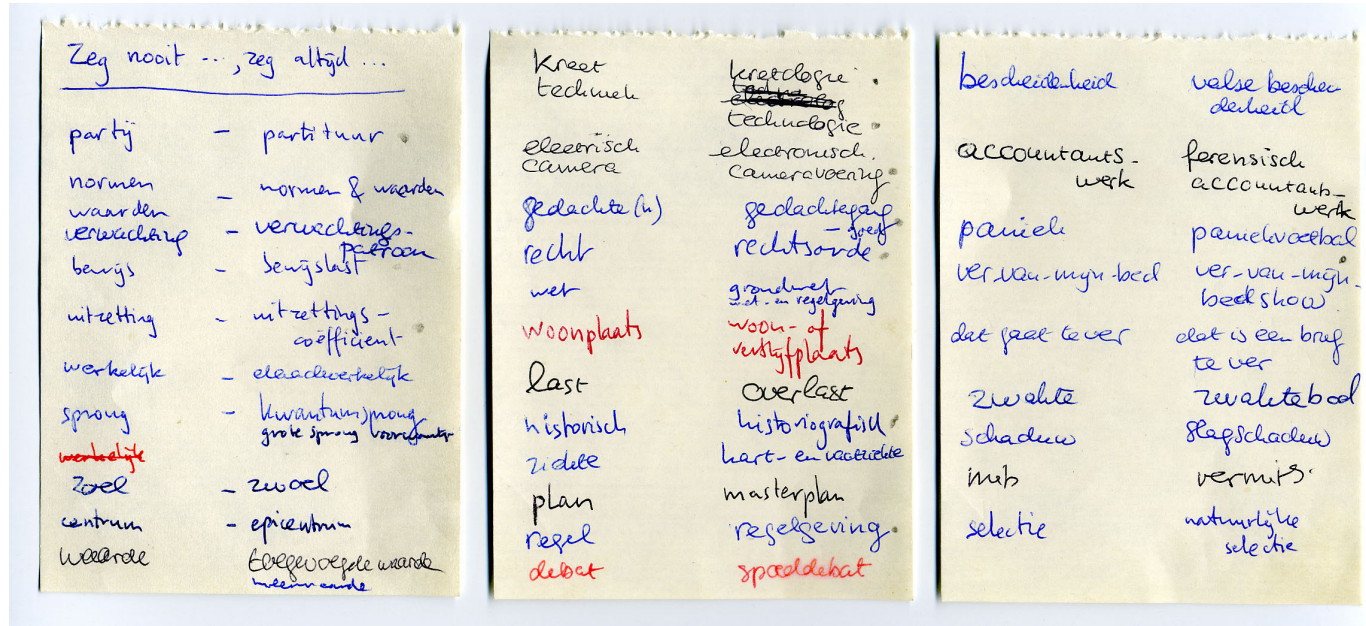 Zeg nooit ..., zeg altijd ...
partij – partituur
normen – normen & waarden
waarden
verwachting – verwachtings-
patroon
bewijs – bewijslast
uitzetting – uitzettings-
coëfficient
werkelijk – daadwerkelijk
sprong – kwantumsprong
grote sprong voorwaarts
werkelijk
zoel – zwoel
centrum – epicentrum
waarde toegevoegde waarde
meerwaarde
kreet kretologie
techniek
technologie
electrisch electronisch
camera cameravoering
gedachte(n) gedachtegang
– goed
recht rechtsorde
wet grondwet
wet- en regelgeving
woonplaats woon- of
verblijfplaats
last overlast
historisch historiografisch
ziekte hart- en vaatziekte
plan masterplan
regel regelgeving
debat spoeddebat
bescheidenheid valse beschei
denheid
accountants- forensisch
werk accountants-
werk
paniek paniekvoetbal
ver-van-mijn-bed ver-van-mijn-
bedshow
dat gaat te ver dat is een brug
te ver
zwakte zwaktebod
schaduw slagschaduw
mits vermits
selectie natuurlijke
selectie